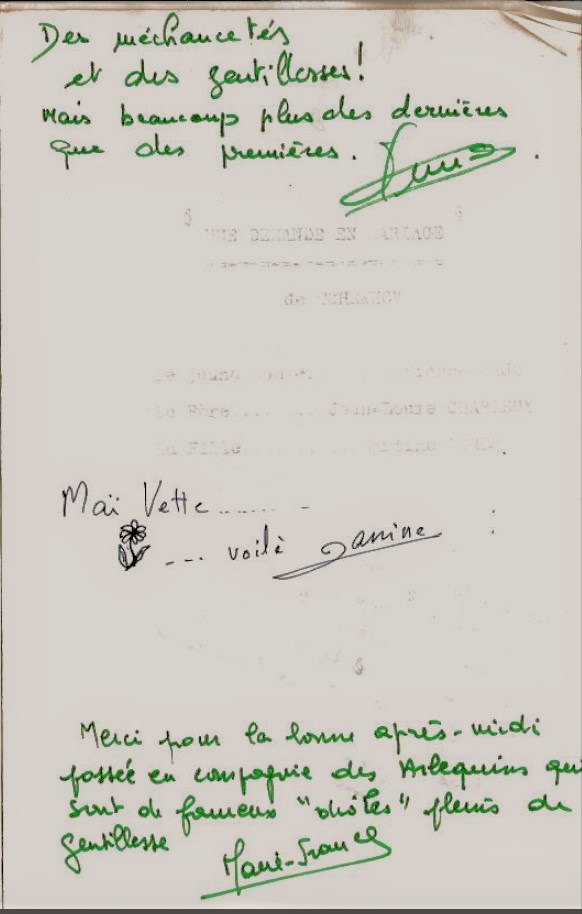 Des méchancetés
et des gentillesses!
Mais beaucoup plus des dernières
que des premières.
UNE DEMANDE EN MARIAGE
de TCHEKHOV
Le Père........Jean-Louis
La Fille
Maï Vette........
... voilè Janine
Merci pour la bonne après-midi
passée en compagnie des Arlequins qui
sont de fameux "drôles" pleins de
gentillesse
Marie-France